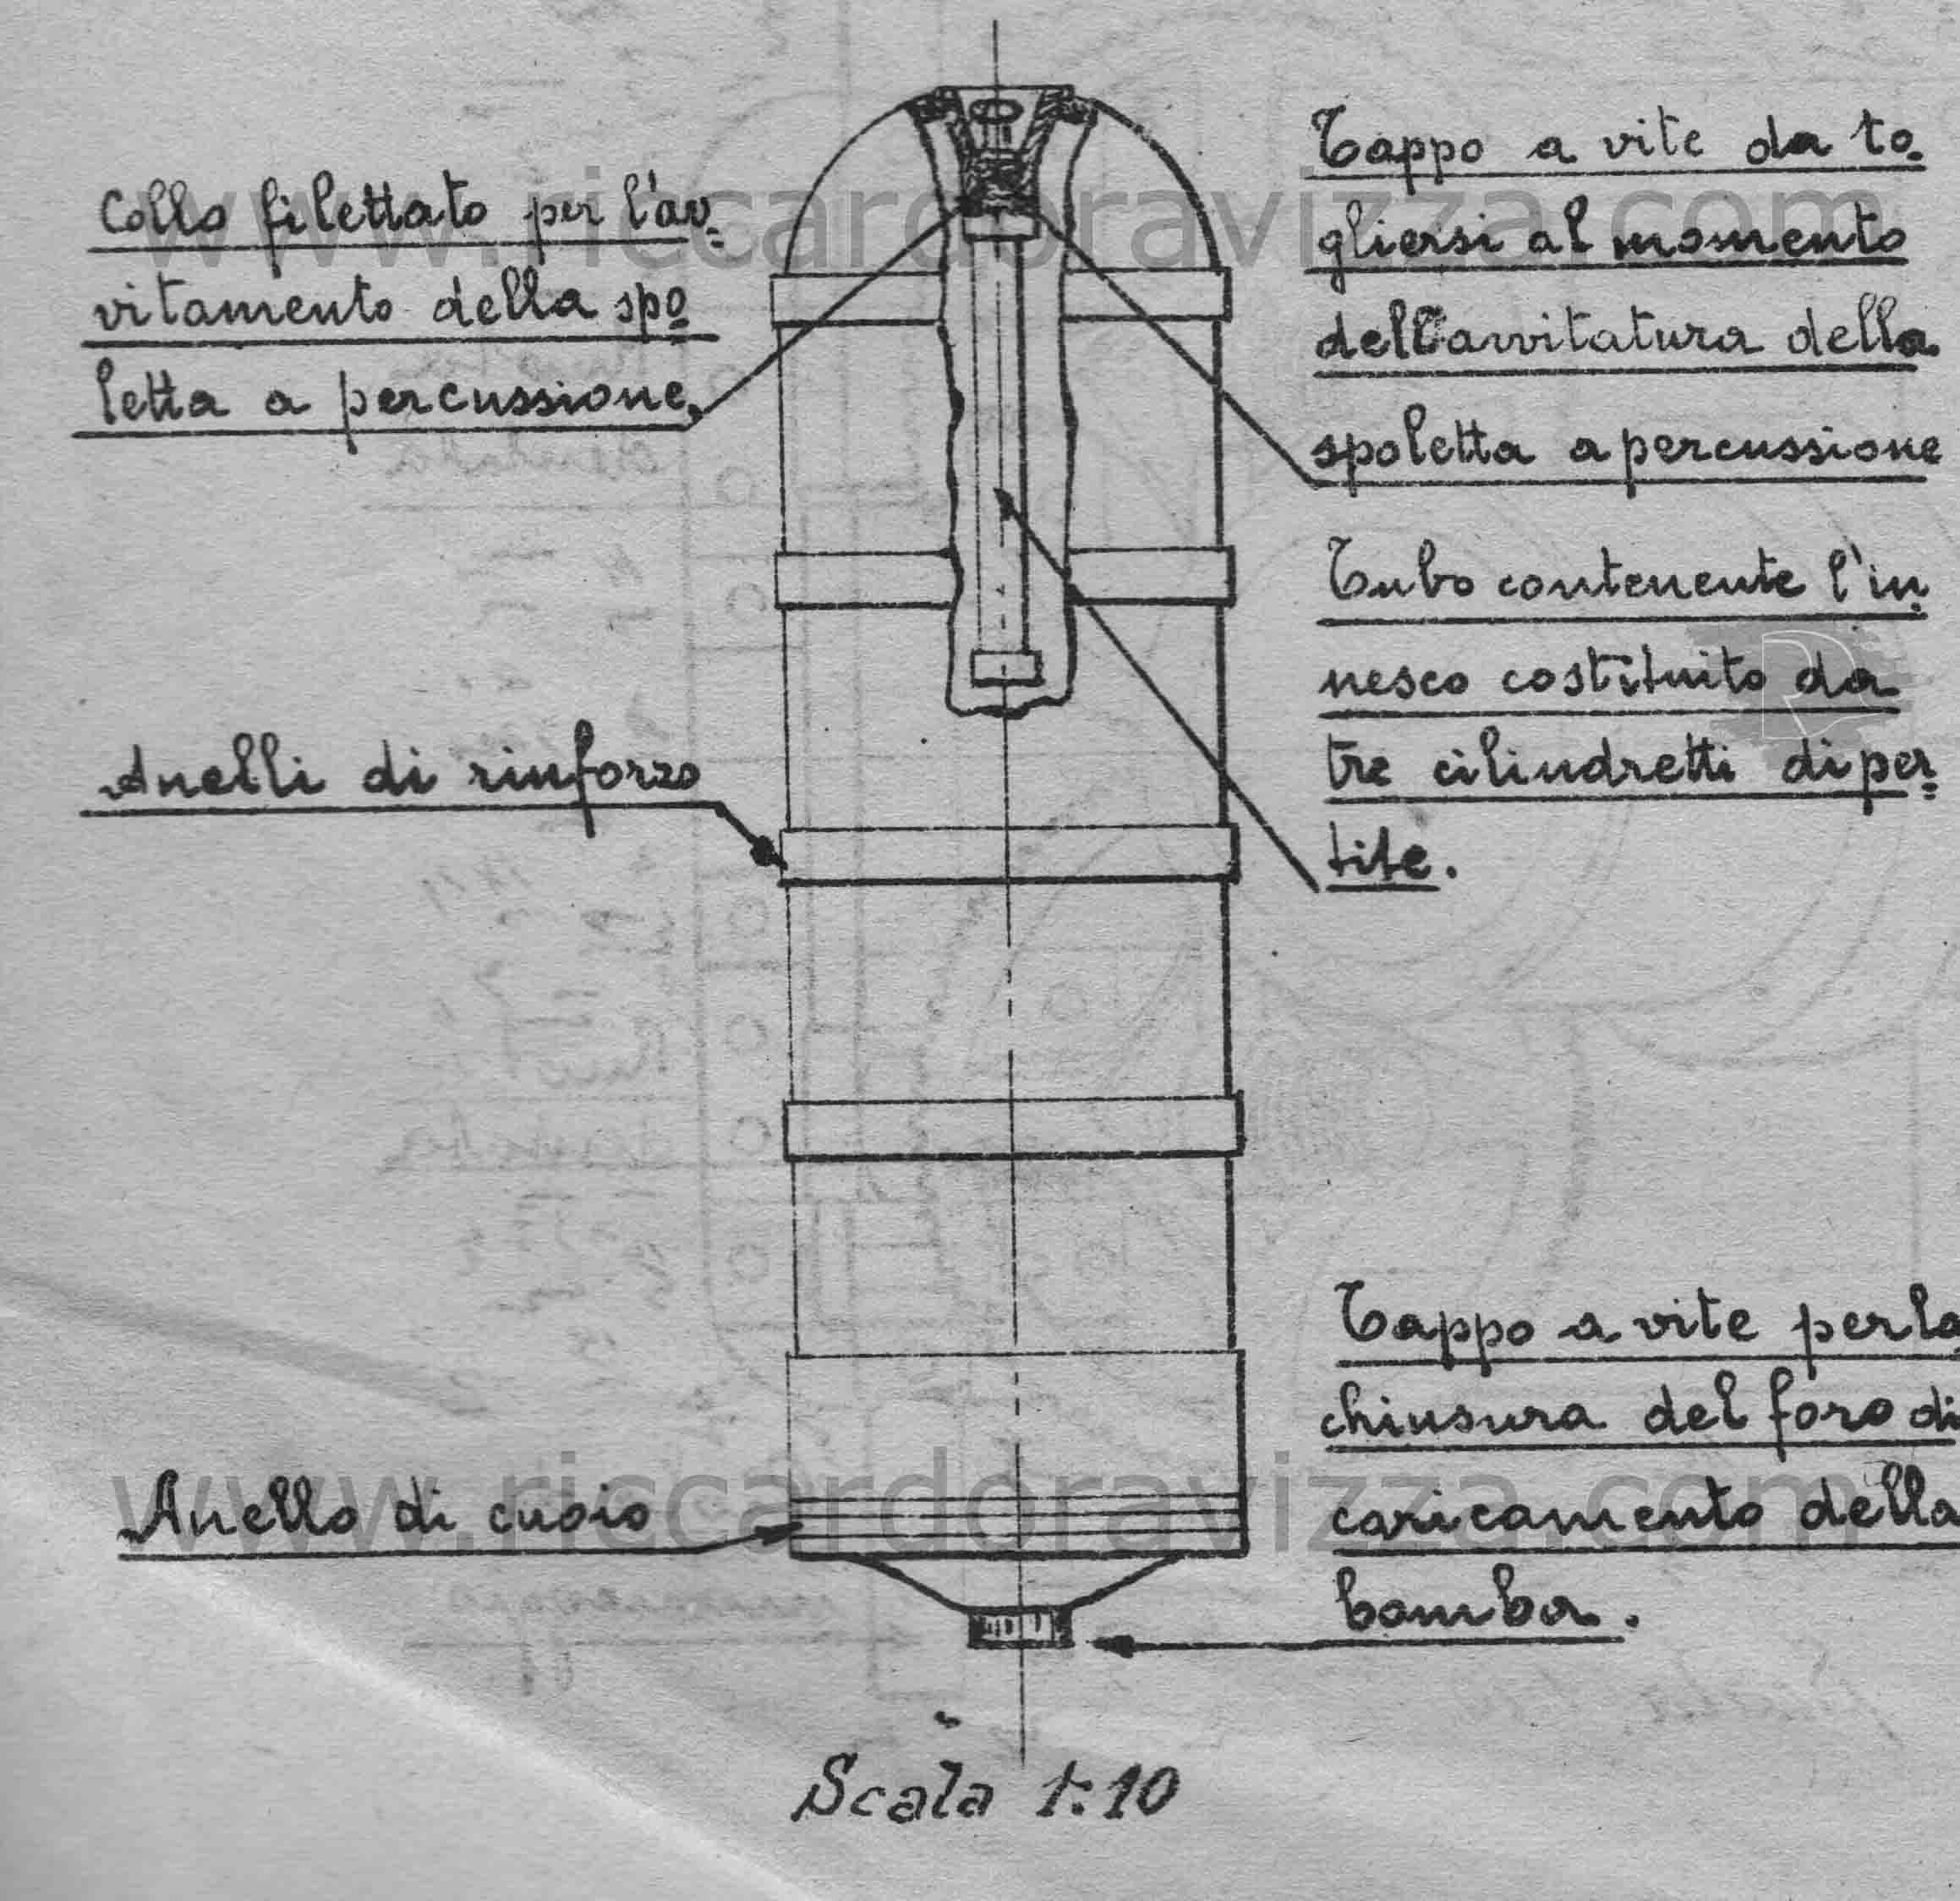 Collo filettato per l'av=
vitamento della spo
letta a percussione.
Tappo a vite da to.
gliersi al momento
dell'avvitatura della
spoletta a percussione
Tubo contenente l'in
nesco costituito da
tre cilindretti di per
tite.
Anelli di rinforzo
Anello di cuoio
Tappo a vite per la
chiusura del foro di
caricamento della
bomba.
Scala 1:10
www.riccardoravizza.com
www.riccardoravizza.com